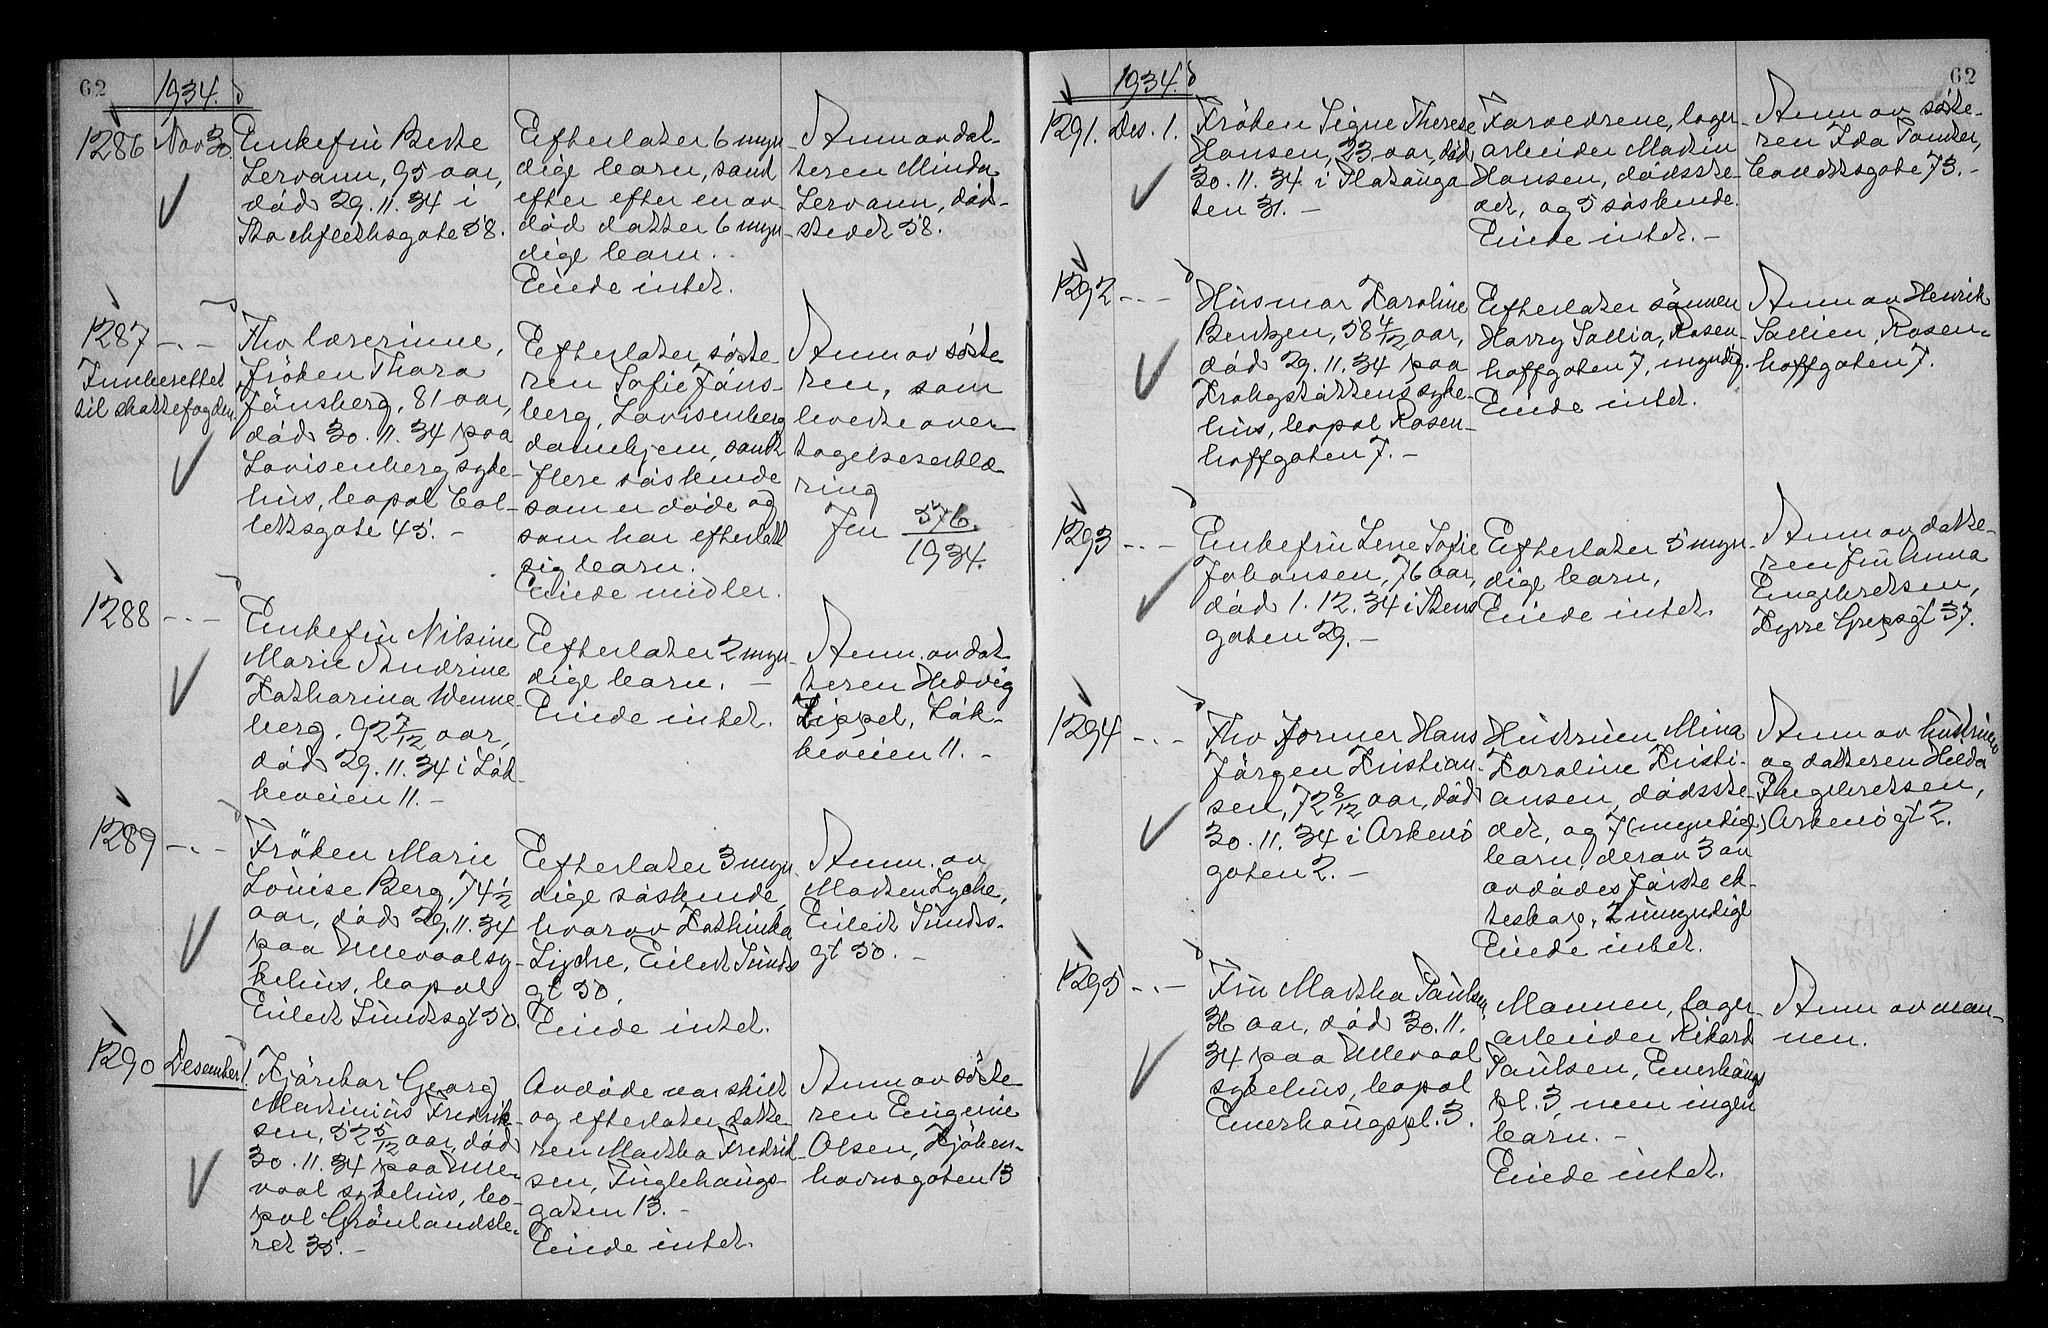 62
1934.
1286
Nov 30.
Enkefru Berte
Lervann, 95 aar,
död 29.11.34 i
Stockflethsgate 58.
Efterlater 6 myn-
dige barn, samt
efter efter en av-
död datter 6 myn-
dige barn.
Eiede intet.
Anm av dat-
teren Minda
Lervann, död-
stedet 58.
1287 -.-
Innberettet
til skattefogden.
Fhv lærerinne,
fröken Thora
Jönsberg, 81 aar,
död 30.11.34 paa
Lovisenberg syke-
hus, bopæl Col-
lettsgate 45. -
Efterlater söste-
ren Sofie Jöns-
berg, Lovisenberg
damehjem, samt
flere söskende
som er döde og
som har efterlatt
sig barn.
Eiede midler.
Anm av söste-
ren, som
hvedte over-
tagelseserklæ-
ring
Jnr 576
1934.
1288 -.-
Enkefru Nilsine
Marie Andrine
Katharina Wenne-
berg, 92 7/12 aar,
död 29.11.34 i Lök-
keveien 11. -
Efterlater 2 myn-
dige barn. -
Eiede intet.
Anm. av dat-
teren Hedvig
Zippel, Lök-
keveien 11. -
1289 -.-
Fröken Marie
Louise Berg, 74 1/2
aar, död 29.11.34
paa Ullevaal sy-
kehus, bopæl
Eilert Sundtsgt 50.
Efterlater 3 myn-
dige söskende,
hvorav Kathinka
Lyche, Eilert Sundts
gt 50.
Eiede intet.
Anm. av
Morten Lyche,
Eilert Sundts-
gt 50. -
1290 Desember 1.
Kjörekar Georg
Martinius Fredrik-
sen, 52 5/12 aar, död
30.11.34 paa Ulle-
vaal sykehus, bo-
pæl Grönlandsle-
ret 35. -
Avdöde var skilt
og efterlater datte-
ren Martha Fredrik-
sen, Fuglehaugs-
gaten 13. -
Eiede intet.
Anm av söste-
ren Eugenie
Olsen, Kjöben-
havnsgaten 13
62
1934.
1291. Des. 1.
Fröken Signe Therese
Hansen, 23 aar, död
30.11.34 i Platouga-
ten 31. -
Forældrene, lager-
arbeider Martin
Hansen, dödsste-
det, og 5 söskende.
Eiede intet. -
Anm av söste-
ren Ida Tander,
Collettsgate 73. -
1292 -.-
Husmor Karoline
Bentzen, 58 4/12 aar,
död 29.11.34 paa
Krohgstöttens syke-
hus, bopæl Rosen-
hoffgaten 7. -
Efterlater sönnen
Harry Sallia, Rosen-
hoffgaten 7, myndig.
Eiede intet.
Anm av Henrik
Sallien, Rosen-
hoffgaten 7.
1293 -.-
Enkefru Lene Sofie
Johansen, 76 aar,
död 1.12.34 i Stens-
gaten 29. -
Efterlater 5 myn-
dige barn,
Eiede intet.
Anm av datte-
ren fru Anna
Engebretsen,
Kyrre Grepsgt 37.
1294 -.-
Fhv former Hans
Jörgen Kristian-
sen, 72 8/12 aar, död
30.11.34 i Askenö
gaten 2. -
Hustruen Mina
Karoline Kristi-
ansen, dödsste-
det, og 7 (myndige)
barn derav 3 av
avdödes förste ek-
teskap, 2 umyndige
Eiede intet.
Anm av hustruen
og datteren Hilda
Engebretsen,
Askenögt 2.
1295 -.-
Fru Martha Paulsen,
36 aar, död 30.11.
34 paa Ullevaal
sykehus, bopæl
Enerhaugspl. 3.
Mannen, lager-
arbeider Rikard
Paulsen, Enerhaugs
pl. 3, men ingen
barn. -
Eiede intet.
Anm av man-
nen.